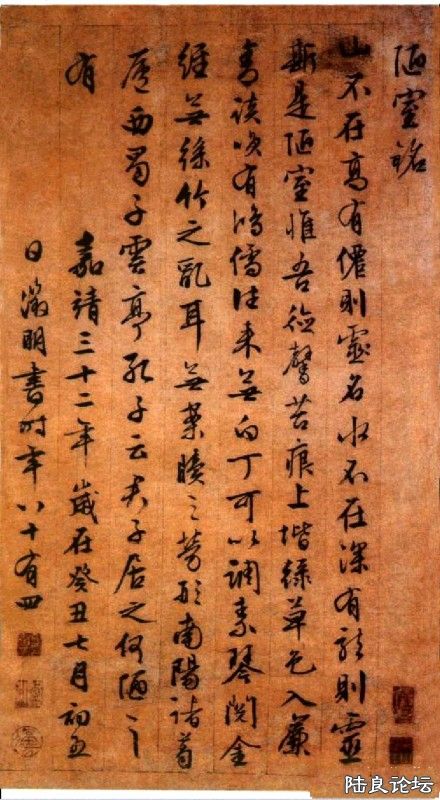 陋室銘
山不在高有僊則靈名水不在深有龍則靈
斯是陋室惟吾德馨苔痕上堦綠草色入簾
青談咲有鴻儒往来無白丁可以調素琴閱金
經無絲竹之亂耳無案牘之勞形南陽諸葛
廬西蜀子雲亭孔子云君子居之何陋之
有
嘉靖三十二年歲在癸丑七月初五
日徵明書时年八十有四
陆良论坛